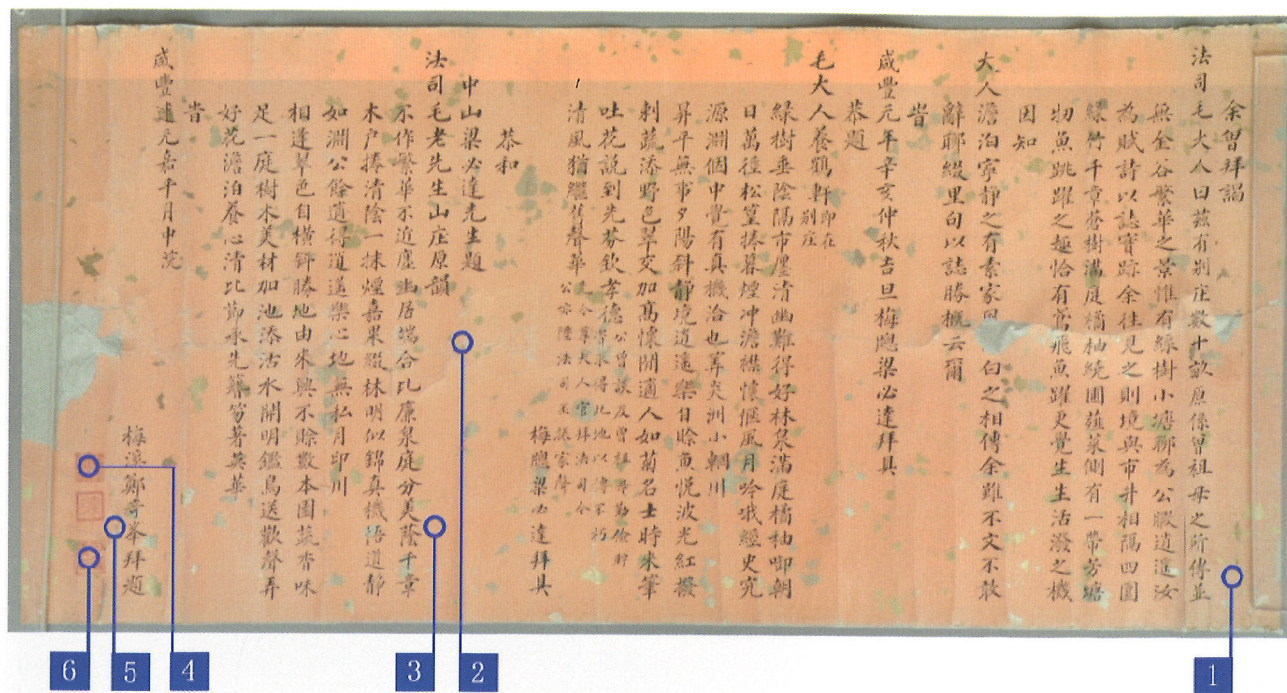 余曾拜謁
法司毛大人曰茲有別庄數十畝原係曾祖母之所傳並
無金谷繁華之景惟有綠樹小塘聊為公暇逍遙汝
為賦詩以誌實跡余往見之則境與市井相隔四圍
綠竹千章蒼樹滿庭橘柚繞圃蔬菜側有一帶芳塘
物魚跳躍之趣恰有鳶飛魚躍更覺生生活潑之機
因知
大人澹泊寧靜之有素家風 白之相傳余雖不文不敢
辭聊綴里句以誌勝概云爾
旹
咸豐元年辛亥仲秋吉旦梅牕梁必達拜具
恭題
毛大人養鶴軒即在別庄
綠樹垂陰隔市廛清幽難得好林泉滿庭橘柚啣朝
日萬徑松篁捧暮煙冲澹襟懷偃風月吟哦經史究
源淵個中覺有真機洽也筭炎洲小輞川
昇平無事夕陽斜靜境逍遙樂自賒魚悅波光紅撥
剌蔬添野色翠交加高懷開適人如菊名士時來筆
吐花說到先芬欽孝德
清風猶繼舊聲華
梅牕梁必達拜具
恭和
中山梁必達先生題
法司毛老先生山庄原韻
不作繁華不近塵幽居端合比廉泉庭分美蔭千章
木户捲清陰一抹煙嘉果綴林明似錦真機悟道靜
如淵公餘適得逍遙樂心地無私月印川
相逢翠色自橫斜勝地由來興不賒數本園蔬香味
足一庭樹木美材加池添活水開明鑑鳥送歡聲弄
好花澹泊養心清比節承先簪笏著英華
旹
咸豐 元嘉平月中浣
梅溪鄭奇峯拜題
1
2
3
4
5
6